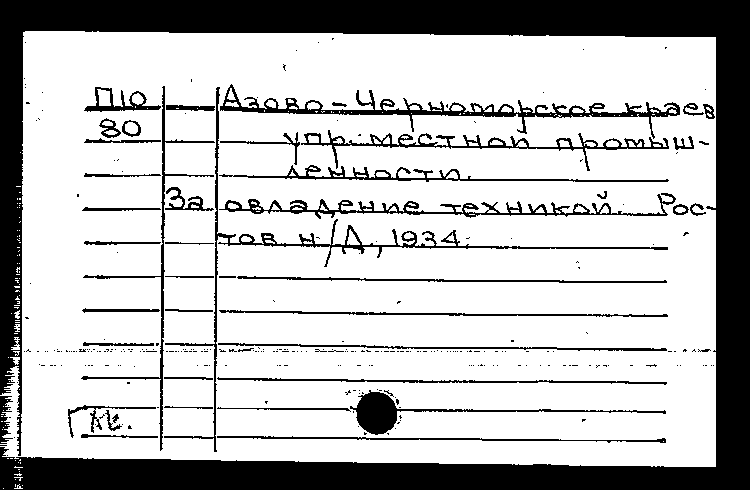 П10 Азово-Черноморское краев
80 упр. местной промыш-
ленности.
За овладение техникой. Рос-
тов н/Д, 1934.